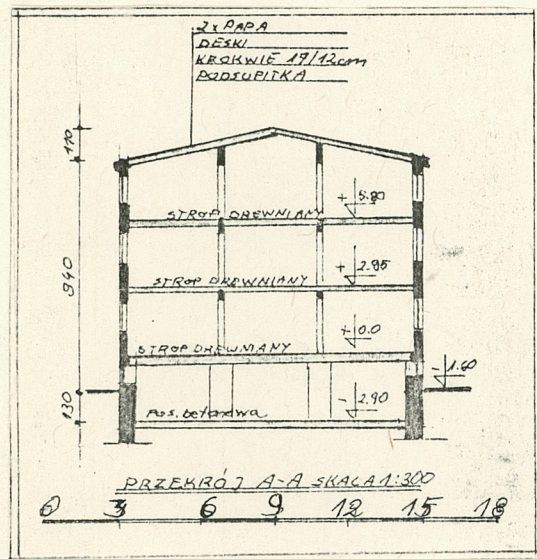 2x PAPA
DESKI
KROKWIE 19/12cm
PODSUFITKA
110
+ 5.80
STROP DREWNIANY
+ 2.95
940
STROP DREWNIANY
± 0.0
STROP DREWNIANY
- 1.60
- 2.90
130
Pos. betonowa
PRZEKRÓJ A-A SKALA 1:300
0 3 6 9 12 15 18